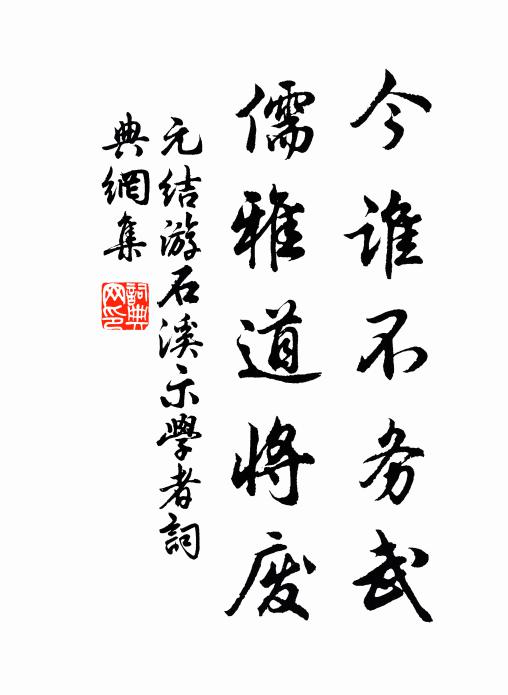 今谁不务武
儒雅道将废
元结游石溪示學者詞
典網集
詞典
网印